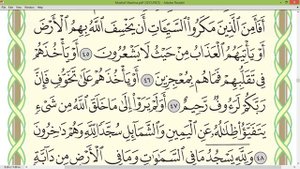 Adobe Reader
أَفَأَمِنَ ٱلَّذِينَ مَكَرُوا۟ ٱلسَّيِّـَٔاتِ أَن يَخْسِفَ ٱللَّهُ بِهِمُ ٱلْأَرْضَ
أَوْ يَأْتِيَهُمُ ٱلْعَذَابُ مِنْ حَيْثُ لَا يَشْعُرُونَ ٤٥ أَوْ يَأْخُذَهُمْ
فِى تَقَلُّبِهِمْ فَمَا هُم بِمُعْجِزِينَ ٤٦ أَوْ يَأْخُذَهُمْ عَلَىٰ تَخَوُّفٍ فَإِنَّ
رَبَّكُمْ لَرَءُوفٌ رَّحِيمٌ ٤٧ أَوَلَمْ يَرَوْا۟ إِلَىٰ مَا خَلَقَ ٱللَّهُ مِن شَىْءٍ
يَتَفَيَّؤُا۟ ظِلَـٰلُهُۥ عَنِ ٱلْيَمِينِ وَٱلشَّمَآئِلِ سُجَّدًا لِّلَّهِ وَهُمْ دَٰخِرُونَ ٤٨
وَلِلَّهِ يَسْجُدُ مَا فِى ٱلسَّمَـٰوَٰتِ وَمَا فِى ٱلْأَرْضِ مِن دَآبَّةٍ